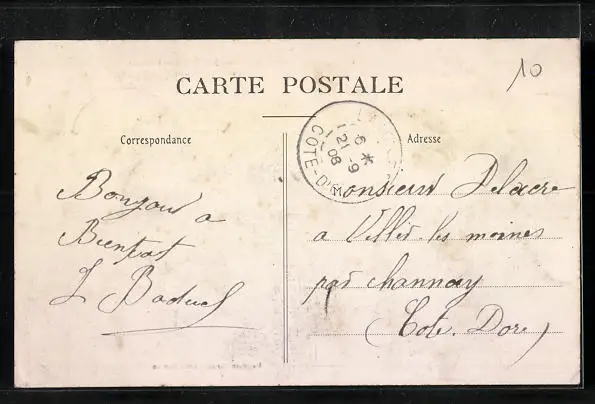 10
CARTE POSTALE
Correspondance
Adresse
6 *
21 -9
08
COTE-D'OR
Bonjour a
Bientot
L
Monsieur Delacre
a Villié. les moines
par channay
(Cote. Dore)